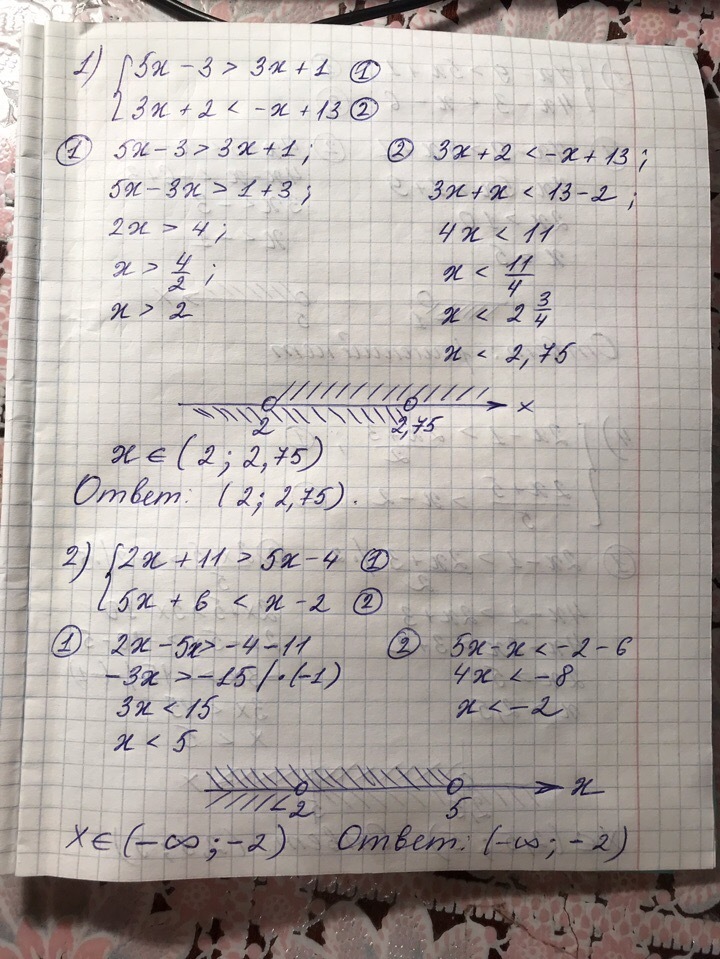 1) { 5x - 3 > 3x + 1 ①
3x + 2 < -x + 13 ②
① 5x - 3 > 3x + 1;
5x - 3x > 1 + 3;
2x > 4;
x > 4/2;
x > 2
② 3x + 2 < -x + 13;
3x + x < 13 - 2;
4x < 11
x < 11/4
x < 2 3/4
x < 2,75
2 2,75 x
x ∈ (2; 2,75)
Ответ: (2; 2,75).
2) { 2x + 11 > 5x - 4 ①
5x + 6 < x - 2 ②
① 2x - 5x > -4 - 11
-3x > -15 | · (-1)
3x < 15
x < 5
② 5x - x < -2 - 6
4x < -8
x < -2
-2 5 x
x ∈ (-∞; -2) Ответ: (-∞; -2)